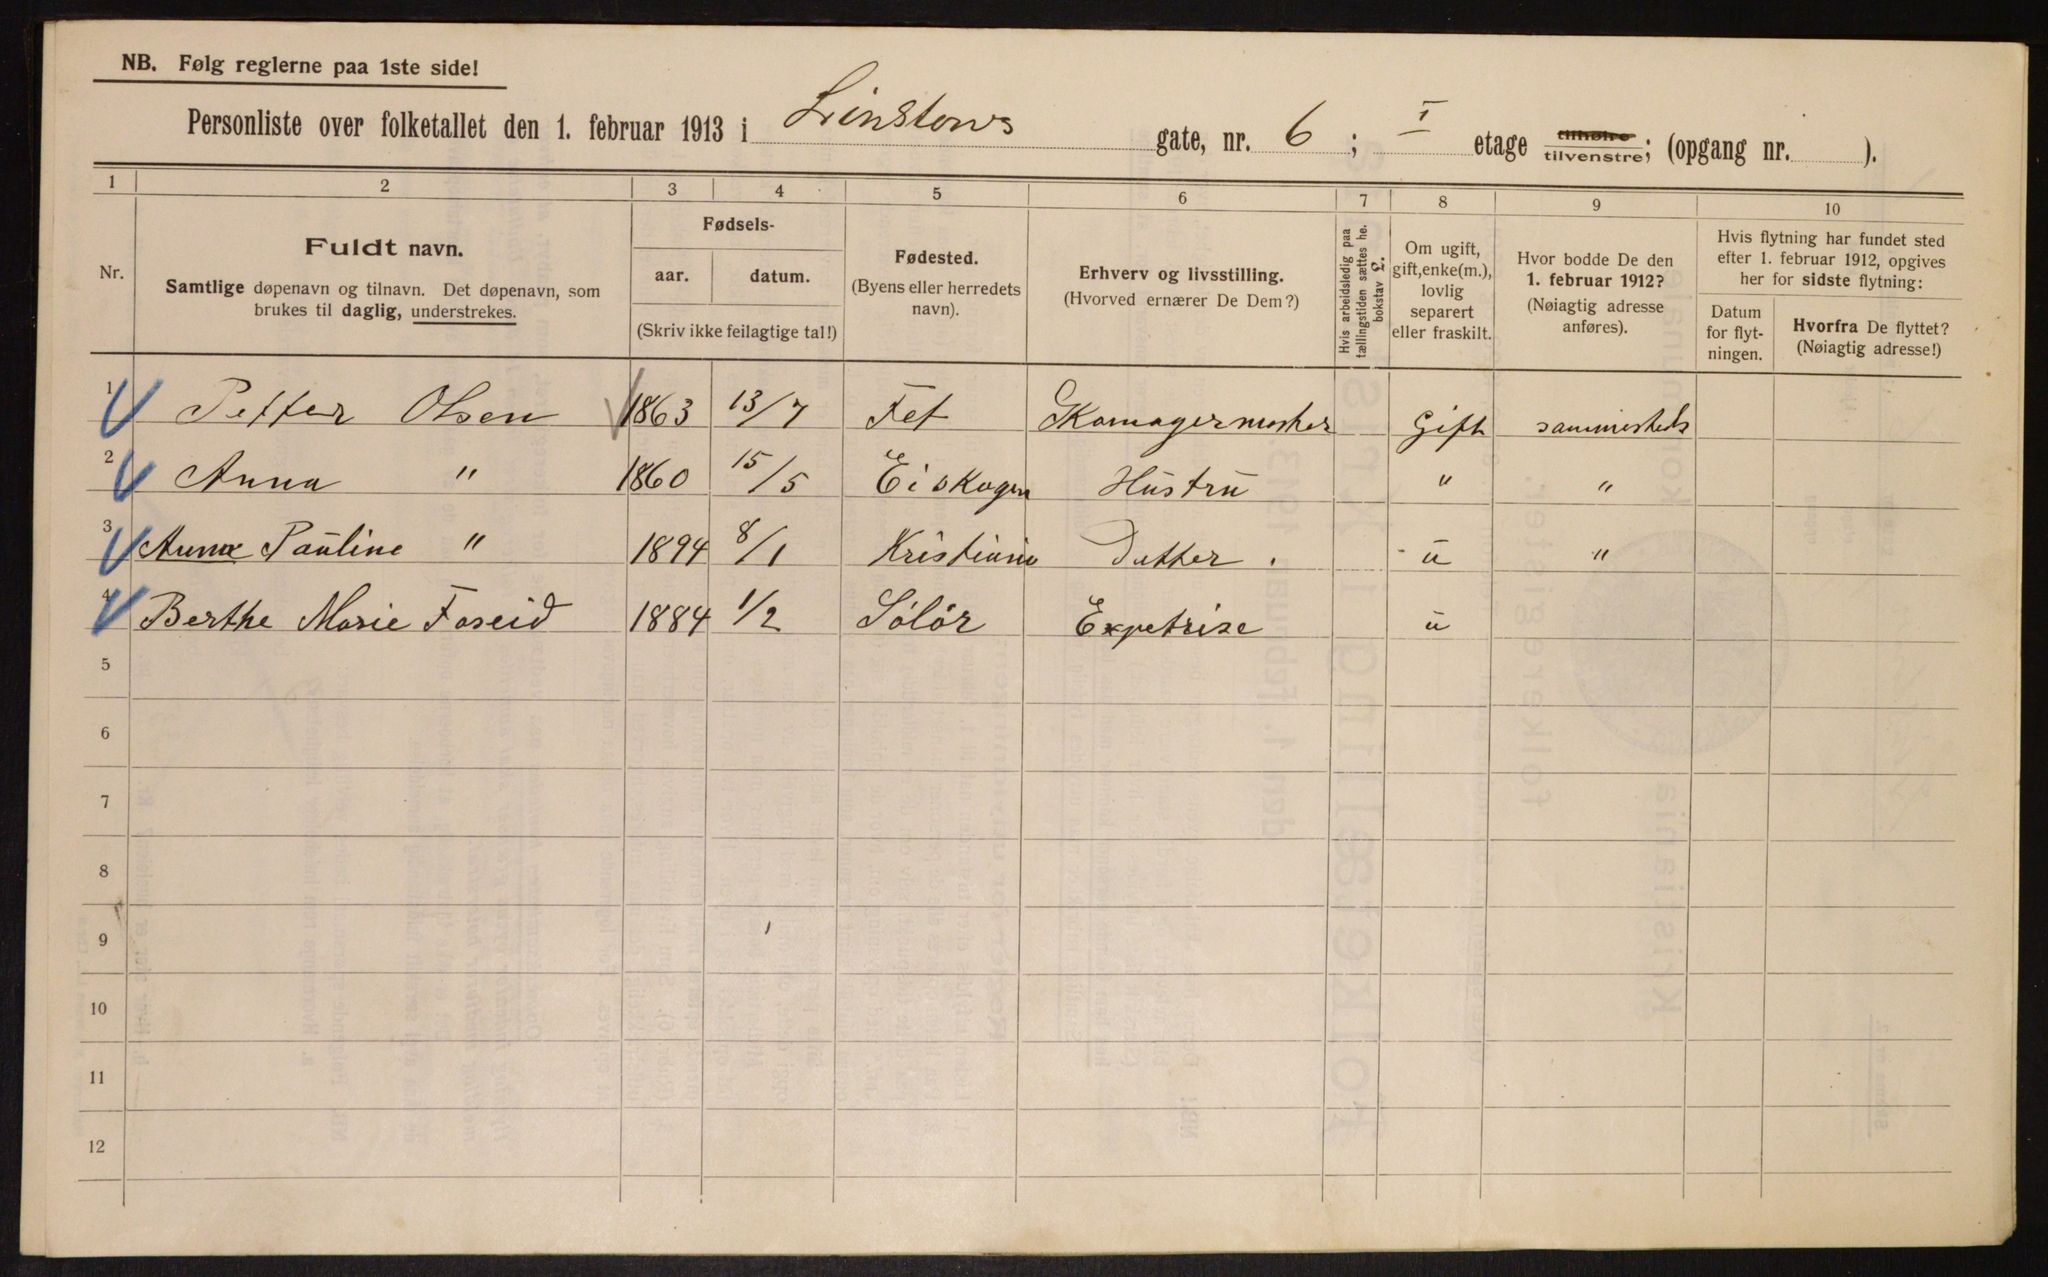 NB. Følg reglerne paa 1ste side!
Personliste over folketallet den 1. februar 1913 i Linstows gate, nr. 6 ; I etage tilhøire tilvenstre; (opgang nr. ).
1 2 3 4 5 6 7 8 9 10
Nr.
Fuldt navn.
Samtlige døpenavn og tilnavn. Det døpenavn, som
brukes til daglig, understrekes.
Fødsels-
aar. datum.
(Skriv ikke feilagtige tal!)
Fødested.
(Byens eller herredets
navn).
Erhverv og livsstilling.
(Hvorved ernærer De Dem?)
Hvis arbeidsledig paa
tællingstiden sættes he.
bokstav L.
Om ugift,
gift, enke(m.),
lovlig
separert
eller fraskilt.
Hvor bodde De den
1. februar 1912?
(Nøiagtig adresse
anføres).
Hvis flytning har fundet sted
efter 1. februar 1912, opgives
her for sidste flytning:
Datum
for flyt-
ningen.
Hvorfra De flyttet?
(Nøiagtig adresse!)
1 Petter Olsen 1863 13/7 Fet Skomagermester Gift sammesteds
2 Anna " 1860 15/5 Eidskogen Hustru " "
3 Anna Pauline " 1894 8/1 Kristiania Datter . u "
4 Berthe Marie Foseid 1884 1/2 Solör Expetrise u
5
6
7
8
9
10
11
12